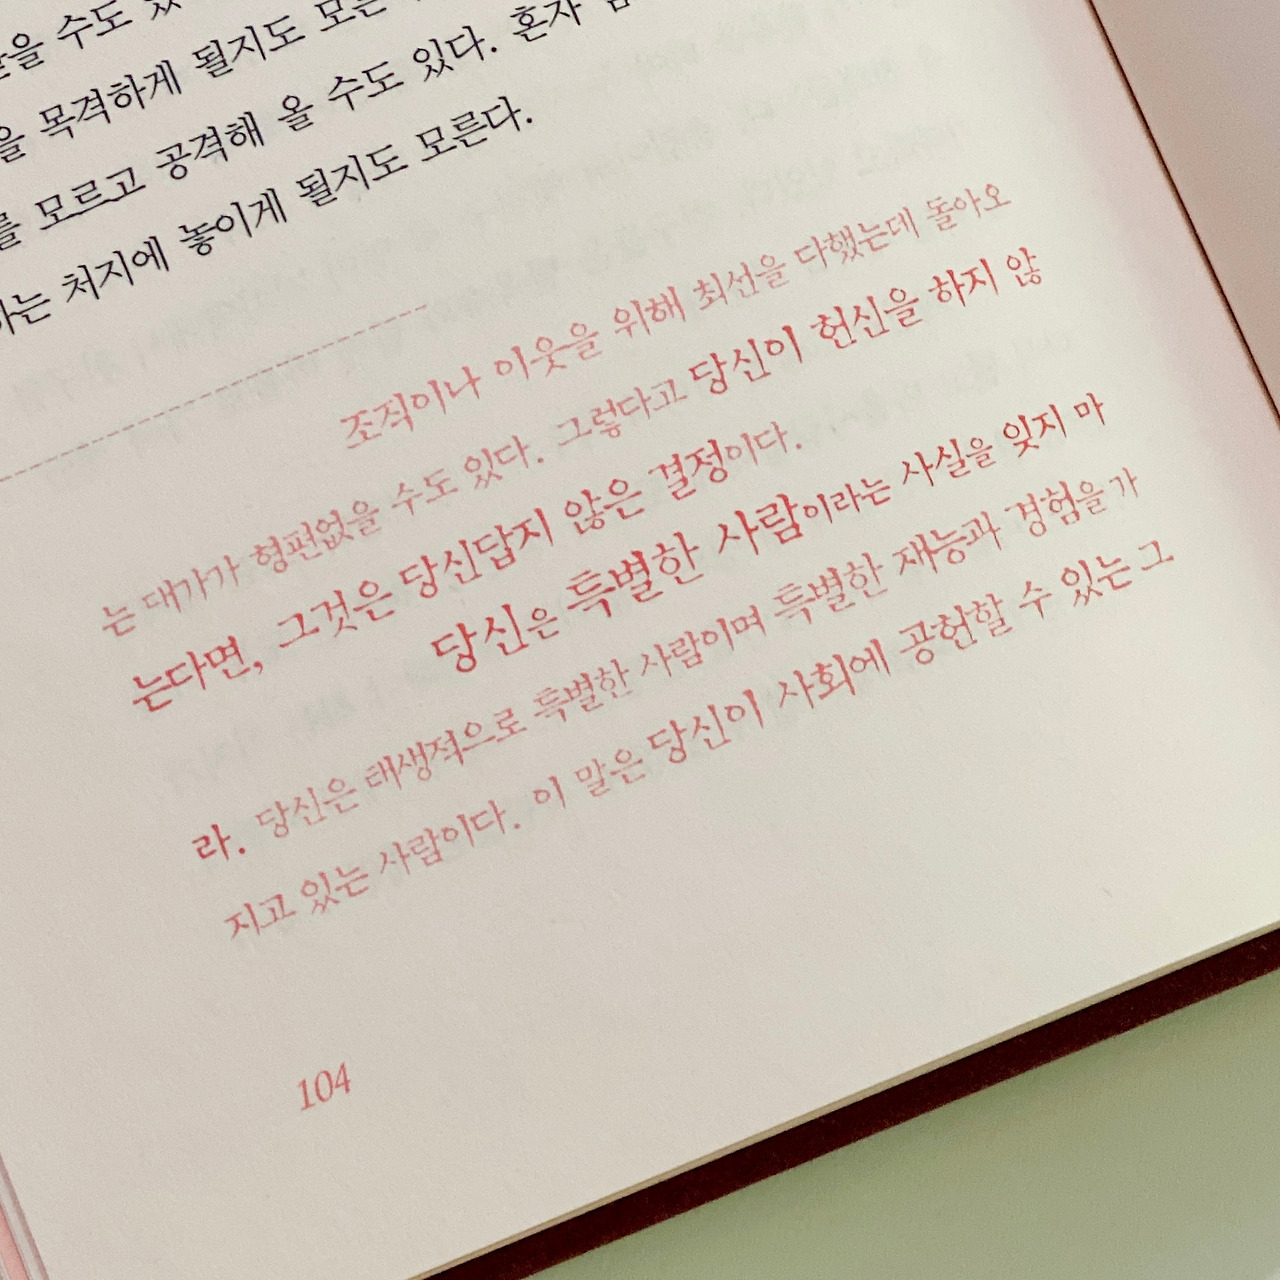 을 수도 있
을 목격하게 될지도 모른
를 모르고 공격해 올 수도 있다. 혼자
하는 처지에 놓이게 될지도 모른다.
조직이나 이웃을 위해 최선을 다했는데 돌아오
는 대가가 형편없을 수도 있다. 그렇다고 당신이 헌신을 하지 않
는다면, 그것은 당신답지 않은 결정이다.
당신은 특별한 사람이라는 사실을 잊지 마
라. 당신은 태생적으로 특별한 사람이며 특별한 재능과 경험을 가
지고 있는 사람이다. 이 말은 당신이 사회에 공헌할 수 있는 그
104